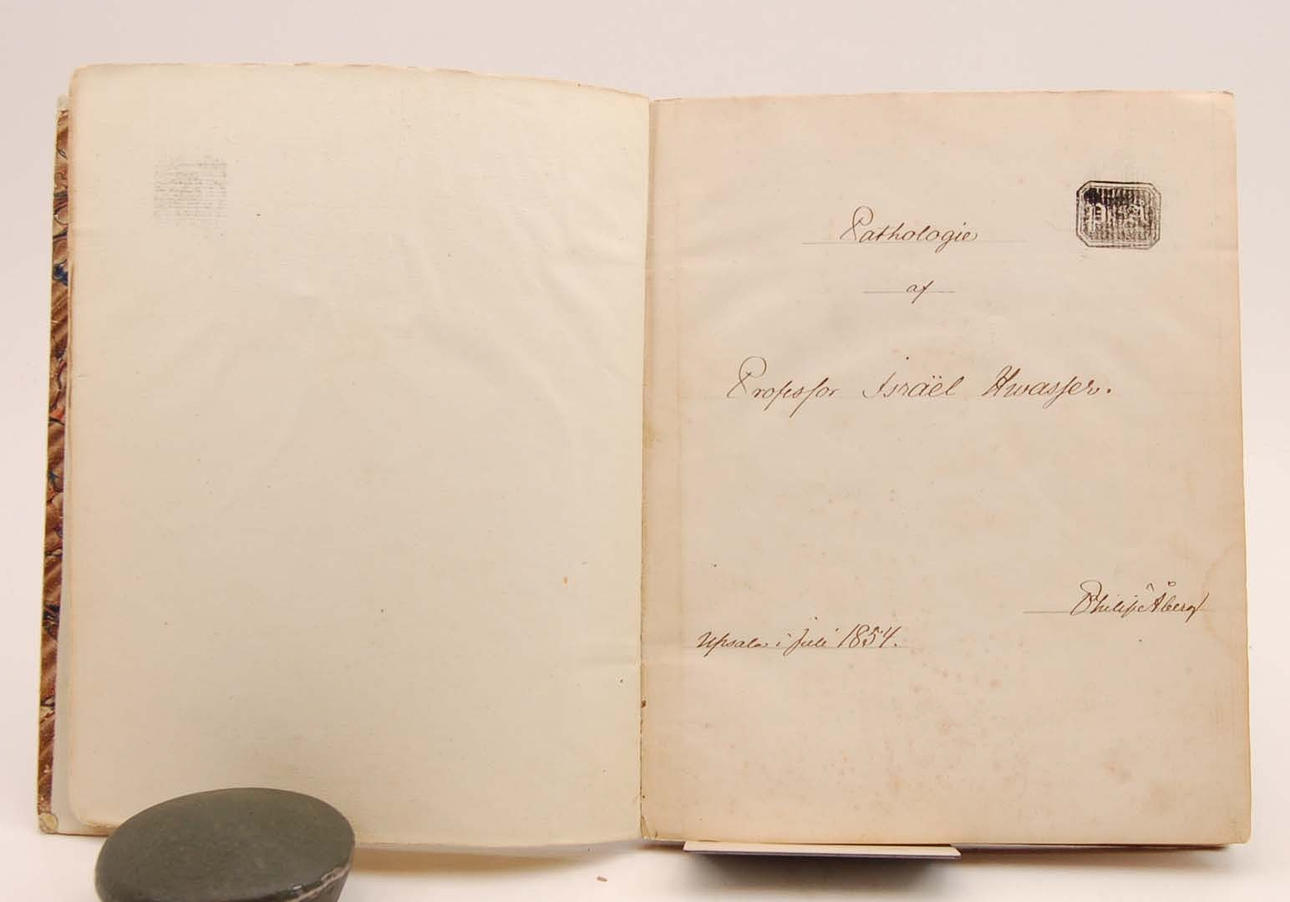 Pathologie
af
Professor Israël Hwasser.
Philip Åberg
Upsala i Juli 1854.